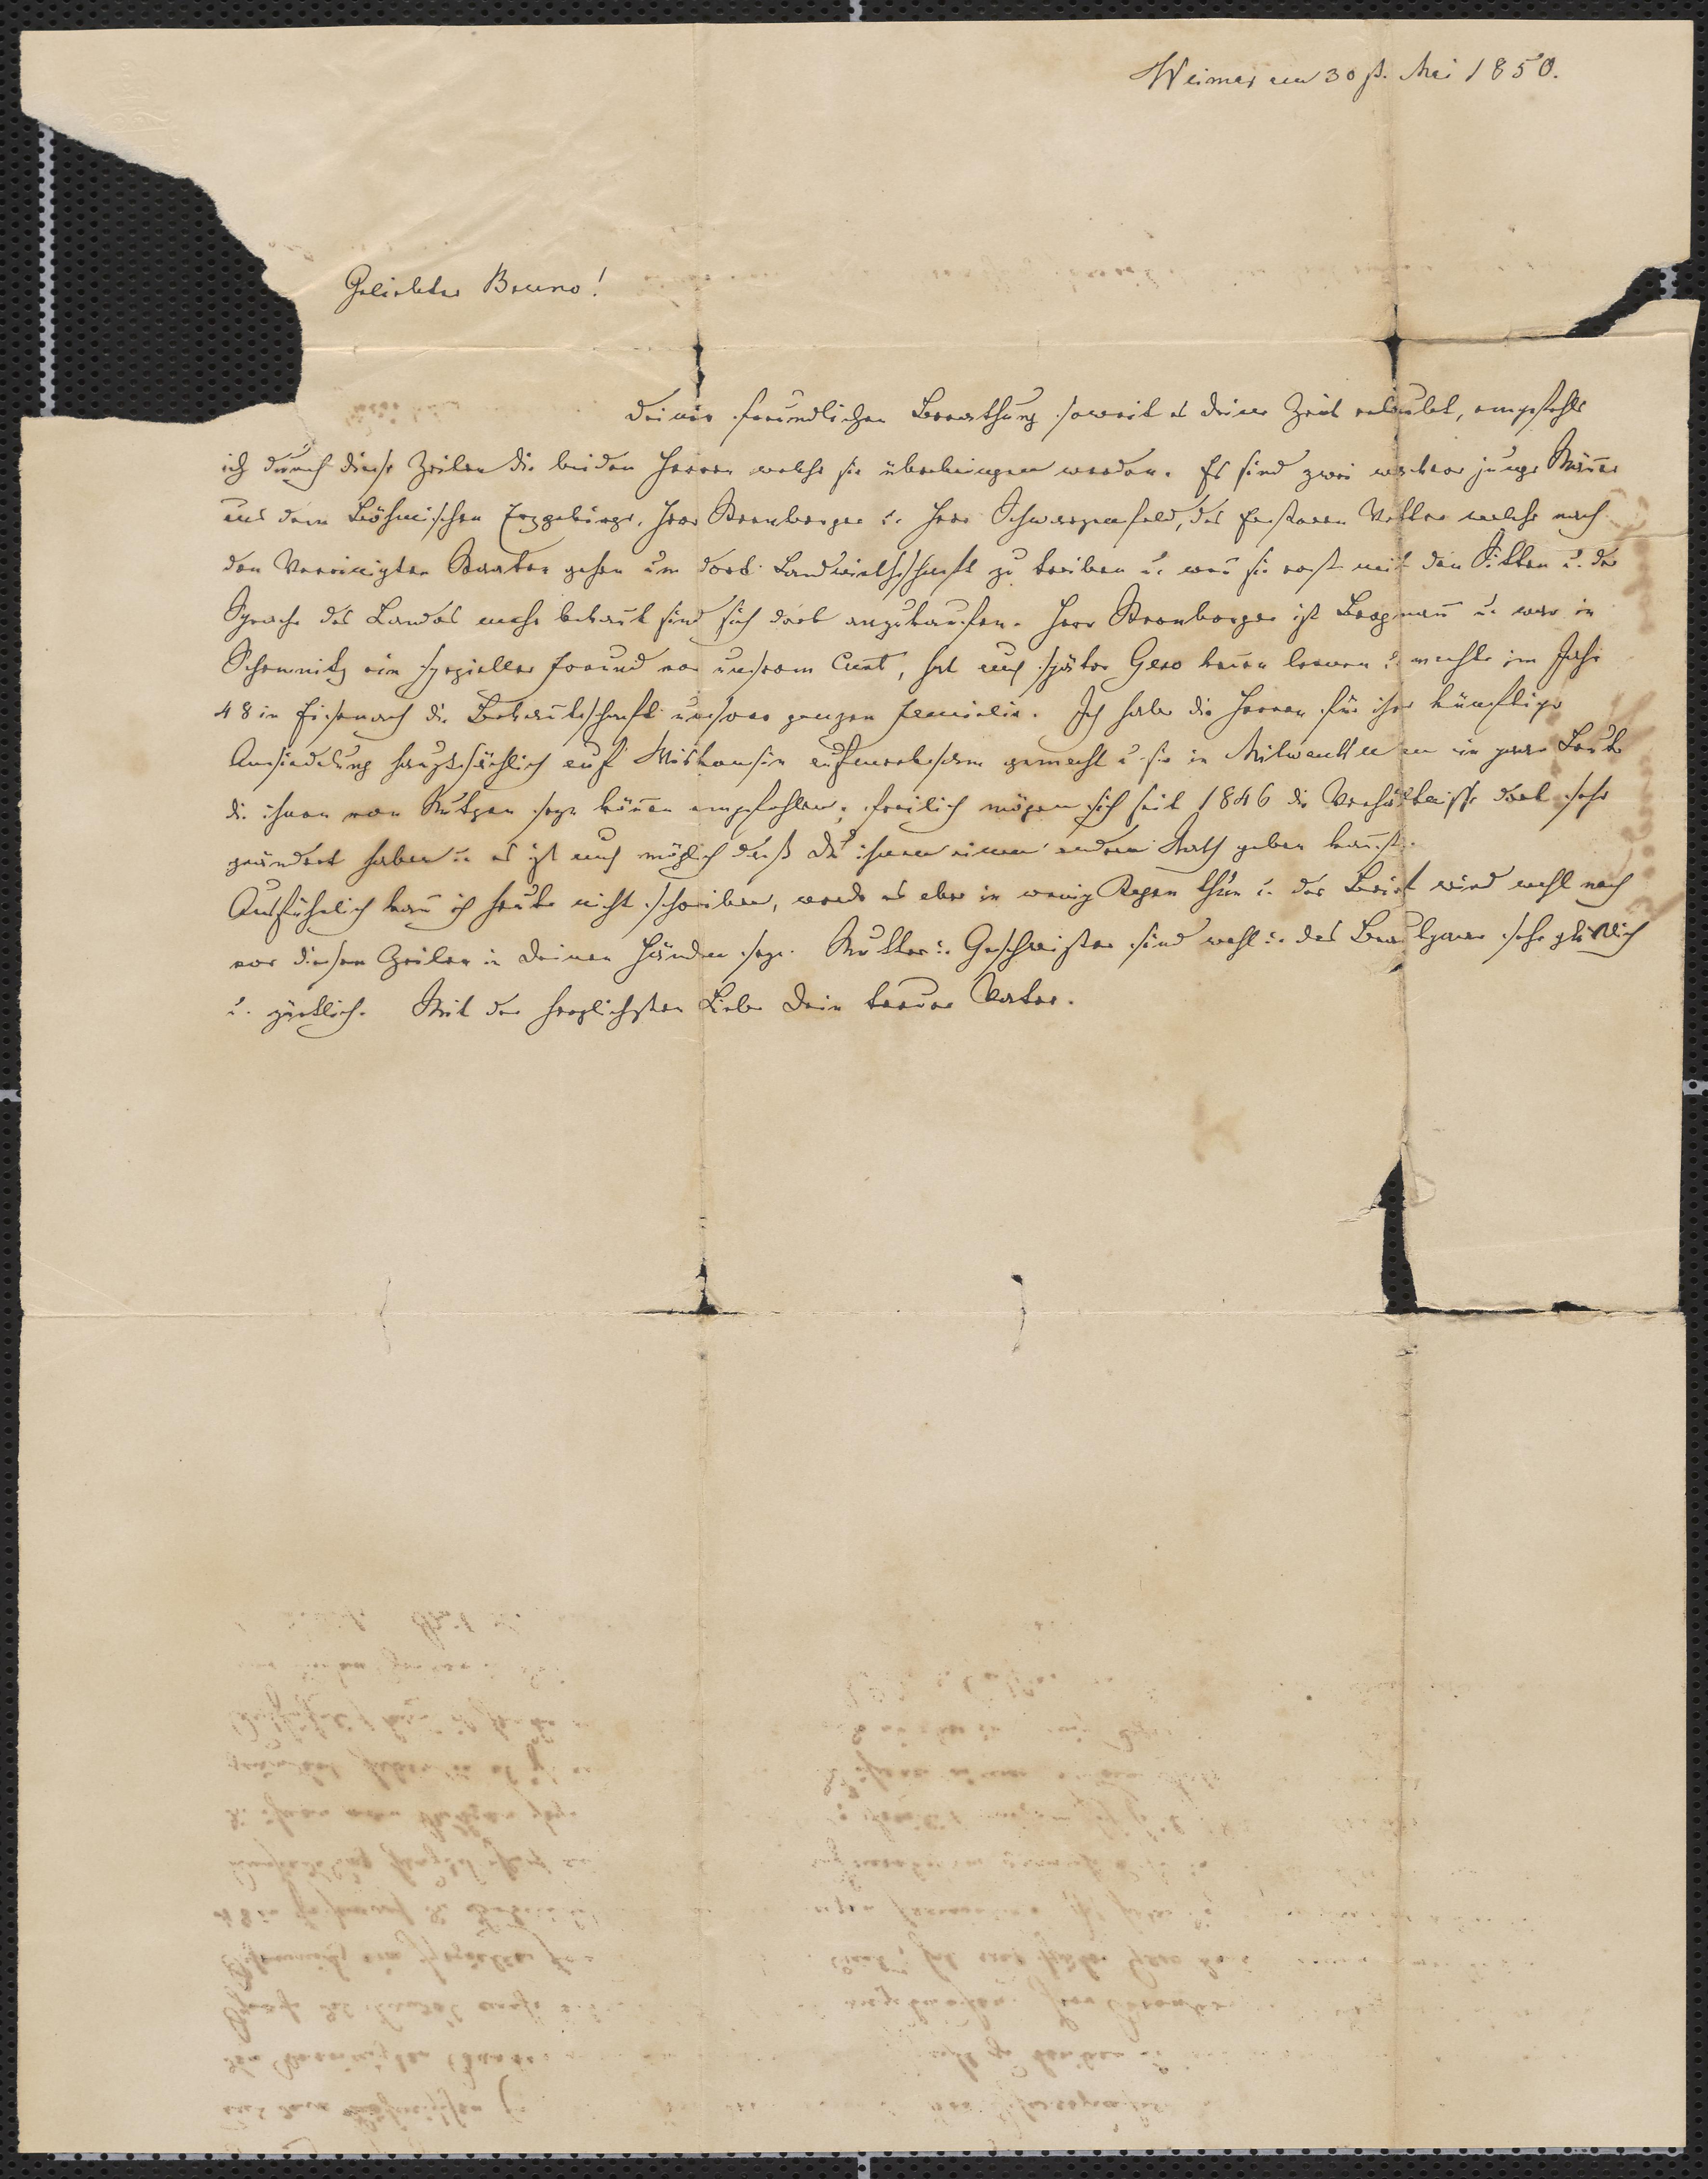 Weimar am 30 st. Mai 1850.
Geliebter Bruno!
Deiner freundlichen Berathung soweit es deine Zeit erlaubt, empfehle
ich durch diese Zeilen die beiden Herren welche sie überbringen werden. Es sind zwei wackere junge Mäñer
aus dem Böhmischen Erzgebirge, Herr Sternberger u. Herr Schwarzenfeld, des ersteren Vetter welche nach
den Vereinigten Staaten gehen um dort Landwirthschaft zu treiben u. weñ sie erst mit den Sitten u. der
Sprache des Landes mehr bekañt sind sich dort anzukaufen. Herr Sternberger ist Bergmañ u. war in
Schemnitz ein spezieller Freund von unserem Curt, hat auch später Gero keñen lernen u. machte im Jahr
48 in Eisenach die Bekañtschaft unserer ganzen Familie. Ich habe die Herren für ihre künftige
Ansiedelung hauptsächlich auf Miskonsin aufmerksam gemacht u. sie in Milwaukee an ein paar Leute
die ihnen von Nutzen seyn köñen empfohlen; freilich mögen sich seit 1846 die Verhältnisse dort sehr
geändert haben u. es ist auch möglich daß du ihnen einen andern Rath geben kañst.
Ausführlich kañ ich heute nicht schreiben, werde es aber in wenig Tagen thun u. der Brief wird wohl noch
vor diesen Zeilen in deinen Händen seyn. Mutter u. Geschwister sind wohl u. das Brautpaar sehr glücklich
u. zärtlich. Mit der herzlichsten Liebe dein treuer Vater.